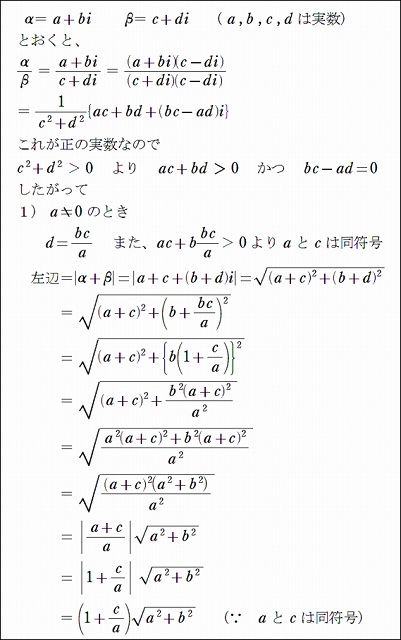 α= a+bi　　β= c+di　　( a , b , c , d は実数)
とおくと、
α/β = (a+bi)/(c+di) = (a+bi)(c−di)/(c+di)(c−di)
= 1/(c²+d²) {ac+bd+(bc−ad)i}
これが正の実数なので
c²+d²>0　より　ac+bd>0　かつ　bc−ad=0
したがって
1） a≠0 のとき
d= bc/a　また、ac+b bc/a >0 より a と c は同符号
左辺=|α+β|=|a+c+(b+d)i|=√((a+c)²+(b+d)²)
= √((a+c)²+(b+bc/a)²)
= √((a+c)²+{b(1+c/a)}²)
= √((a+c)²+b²(a+c)²/a²)
= √((a²(a+c)²+b²(a+c)²)/a²)
= √((a+c)²(a²+b²)/a²)
= |(a+c)/a| √(a²+b²)
= |1+c/a| √(a²+b²)
= (1+c/a)√(a²+b²)　　(∵　a と c は同符号)